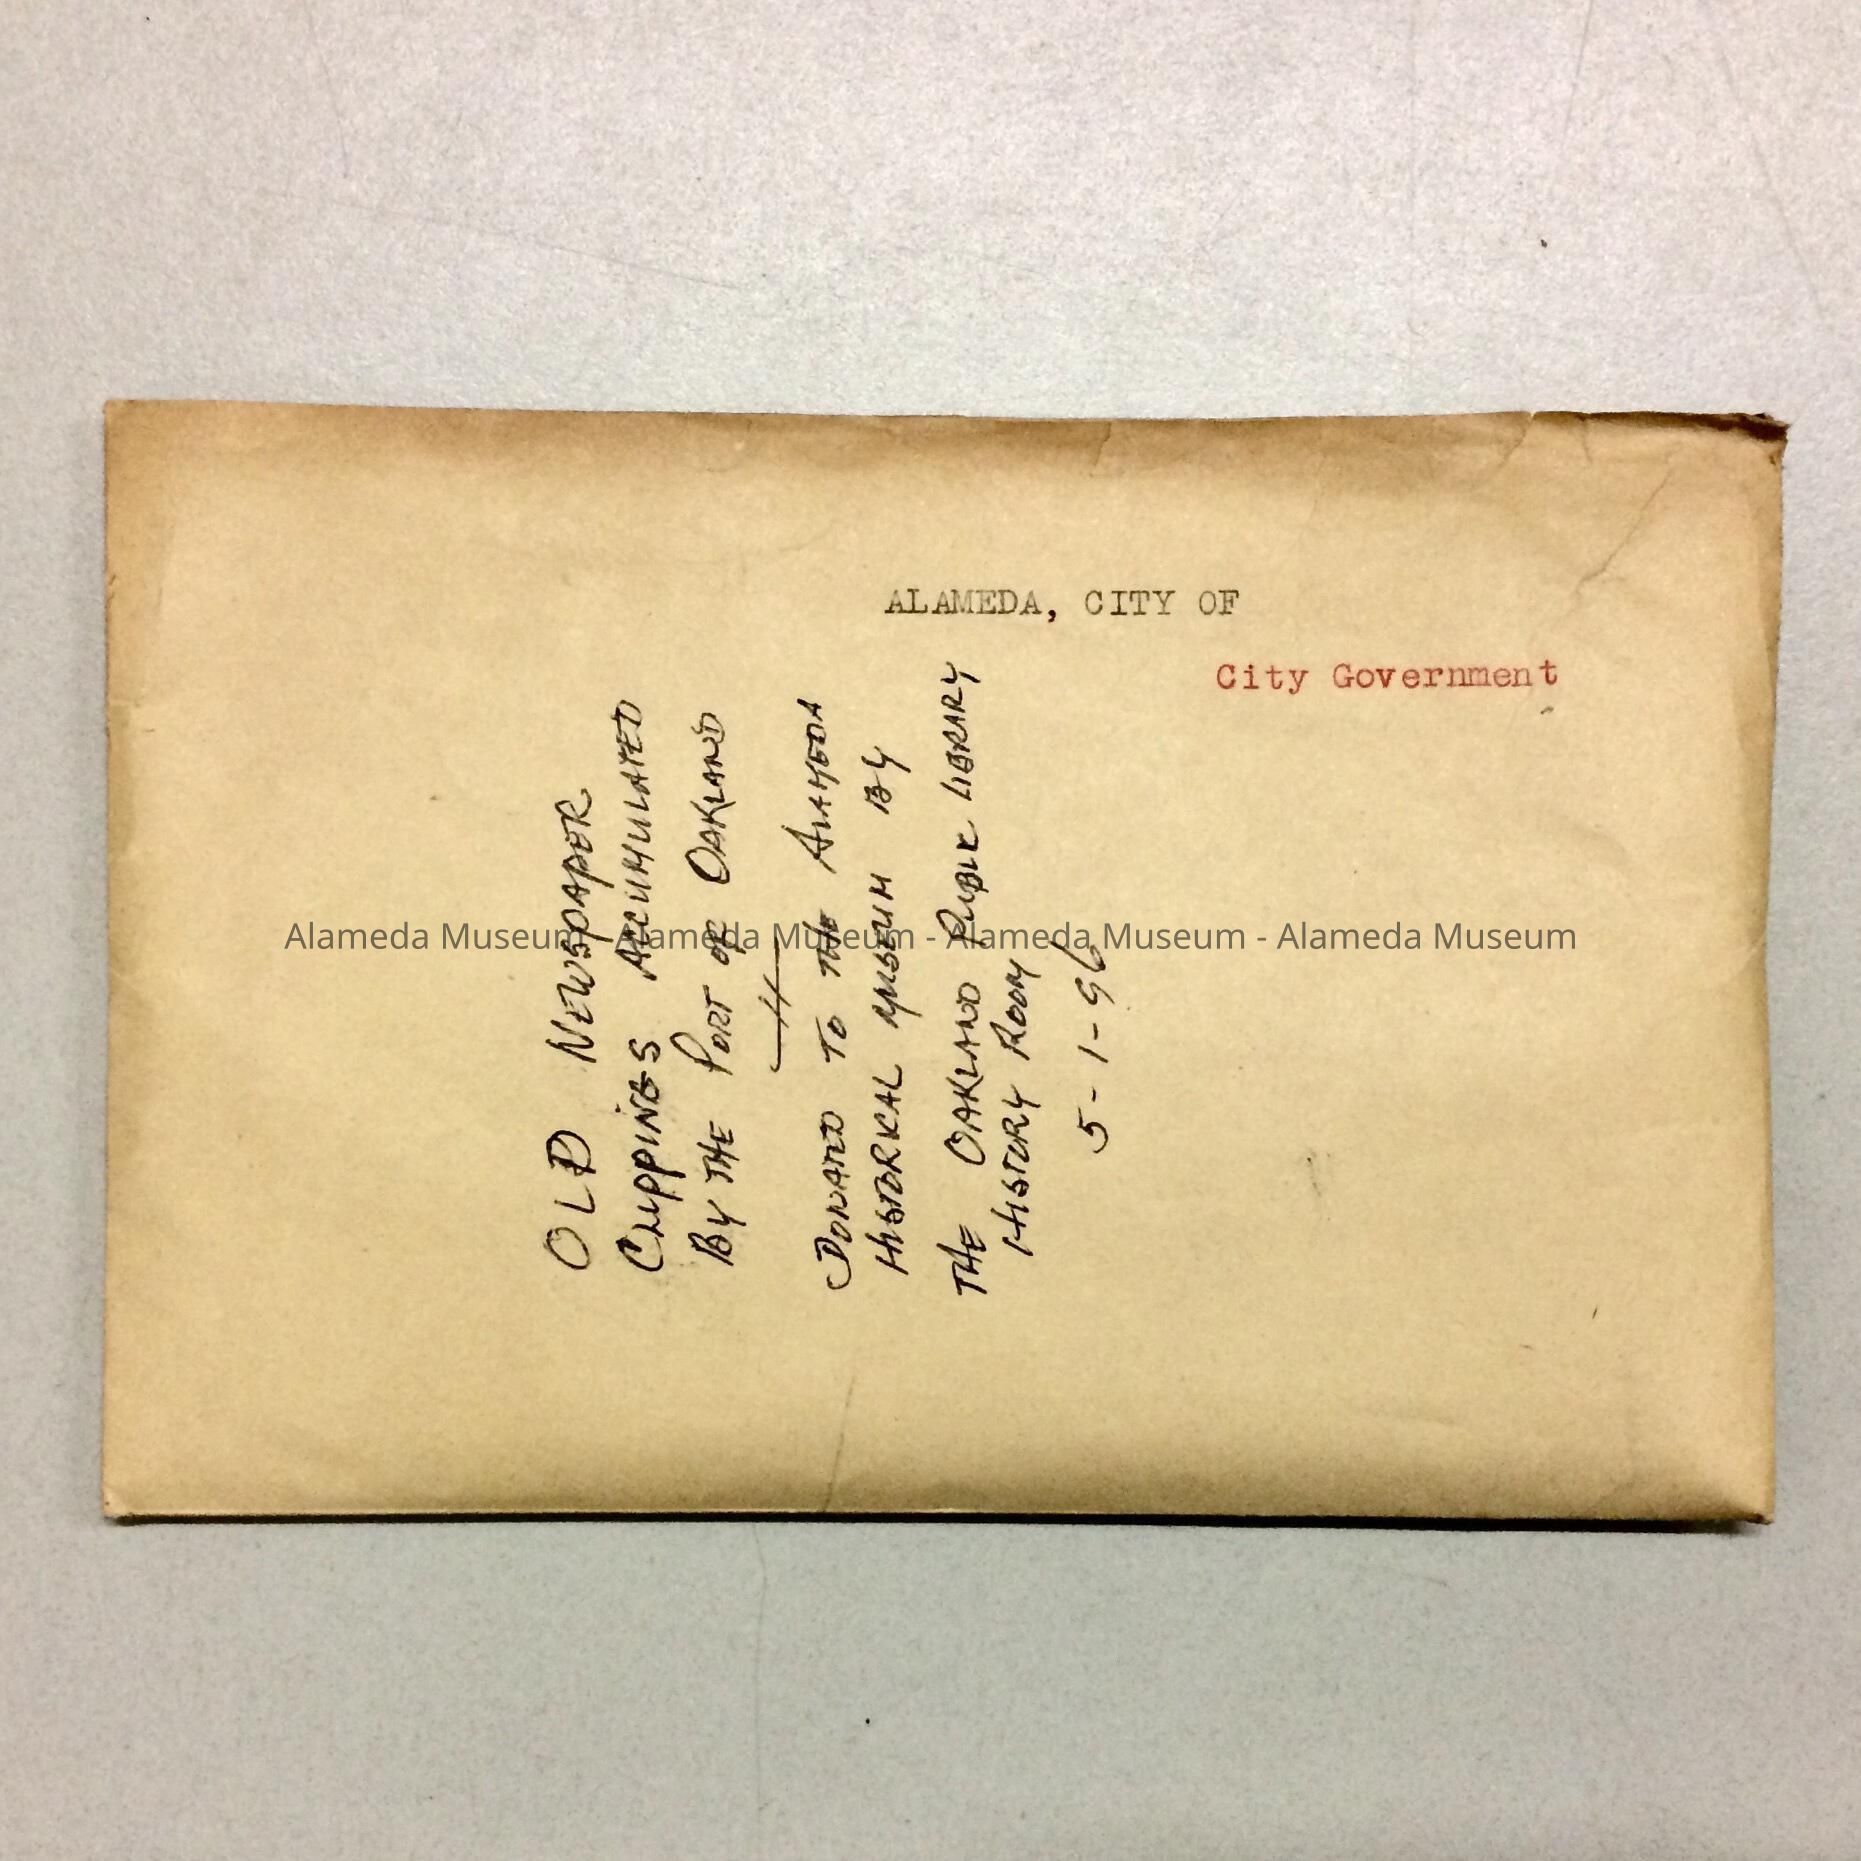 ALAMEDA, CITY OF
City Government
OLD NEWSPAPER
CLIPPINGS ACCUMULATED
BY THE PORT OF OAKLAND
DONATED TO THE ALAMEDA
HISTORICAL MUSEUM BY
THE OAKLAND PUBLIC LIBRARY
HISTORY ROOM
5-1-96
Alameda Museum - Alameda Museum - Alameda Museum - Alameda Museum